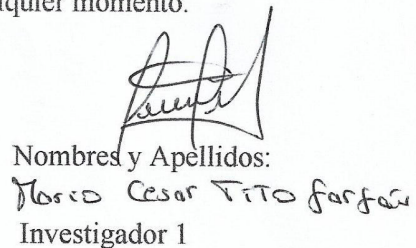 quier momento.
Nombres y Apellidos:
Mario Cesar TITO farfán
Investigador 1